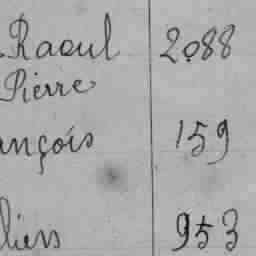 Raoul 2088
Pierre
ançois 159
liers 953